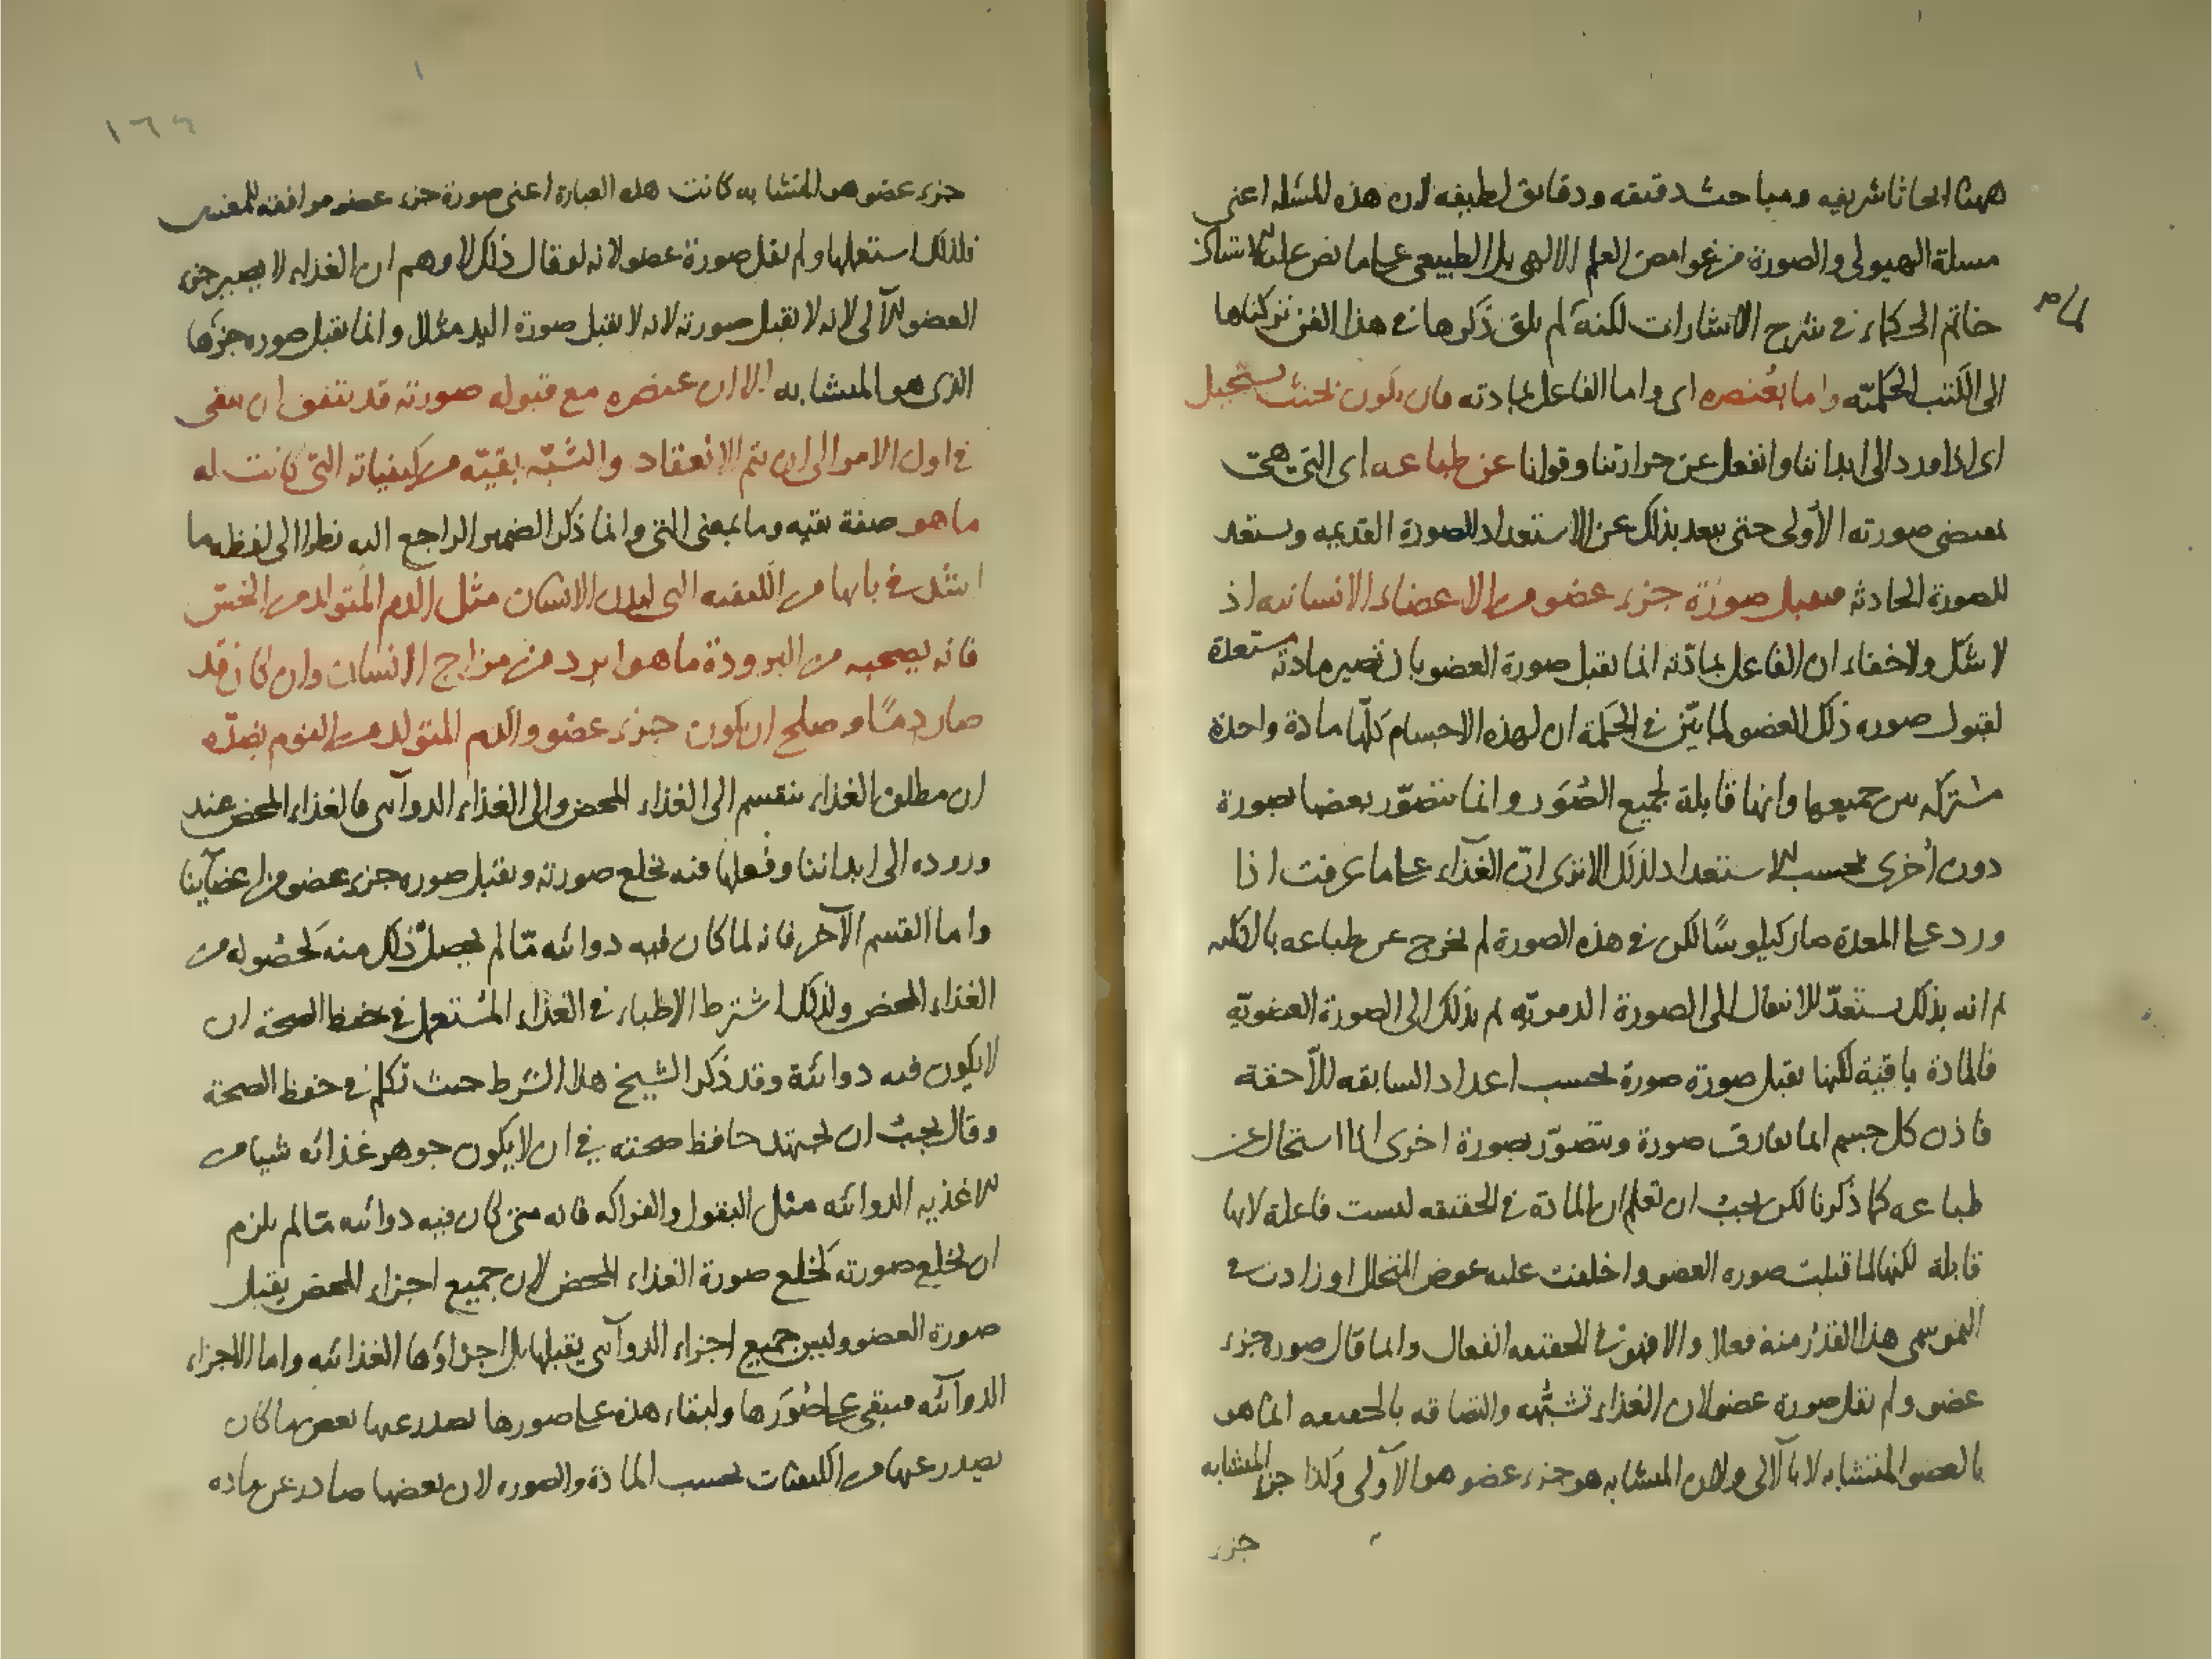 ههنا ابحاثا شريفه ومباحث دقيقه ودقايق لطيفه لان هذه المسئله اعنى
مسلة الهيولى والصورة من غوامض العلم الالهى بل الطبيعى على ما نص عليه الاستاذ
خاتم الحكماء فى شرح الاشارات لكنه لم يلق ذكرها فى هذا الفن تركناها
الى الكتب الحكميّه واما بعُنصره اى واما الفاعل بمادته فان يكون بحيث يستحيل
اى اذا ورد الى ابداننا وانفعل عن حرارتنا وقولنا عن طباعه اى التى هى
مقتضى صورته الأولى حتى يبعد بذلك عن الاستعداد للصورة القديمه ويستعد
للصورة الحادثه فيقبل صورة جزء عضو من الاعضاء الانسانيه اذ
لا شك ولا خفاء ان الفاعل بمادّته انما يقبل صورة العضو بان تصير مادته مستعدة
لقبول صوره ذلك العضو لما بيّن فى الحكمة ان لهذه الاجسام كلّها مادة واحدة
مشتركه بين جميعها وانها قابلة لجميع الصُوَر وانما تتصوّر بعضها بصورة
دون أخرى بحسب الاستعداد لذلك الا ترى انّ الغذاء على ما عرفت اذا
ورد على المعدة صار كيلوسًا لكن فى هذه الصورة لم يخرج عن طباعه بالكليه
ثم انه بذلك يستعدّ للانتقال الى الصورة الدمويّه ثم بذلك الى الصورة العضويّه
فالمادة باقية لكنها تقبل صورة صورة بحسب اعداد السابقه للاّحقة
فاذن كل جسم انما يفارق صورة ويتصوّر بصورة اخرى اذا استحال عن
طباعه كما ذكرنا لكن يجب ان تعلم ان المادّة فى الحقيقه ليست فاعلة لانها
قابلة لكنها لما قبلت صوره العضو واخلفت عليه عوض المتحلل او زادت فى
النمو سمى هذا القدر منه فعلا والا فهو فى الحقيقه انفعال وانما قال صوره جزء
عضو ولم يقل صورة عضو لان الغذاء تشبُّهه والتصاقه بالحقيقه انما هو
بالعضو المتشابه لا بالآلى ولان المتشابه هو جزء عضو هو الآلى وكذا جزء المتشابه
جزء
١٦٦
جزء عضو هو المتشابه كانت هذه العبارة اعنى صورة جزء عضو موافقه للمعنيين
فلذلك استعملها ولم يقل صورة عضو لانه لو قال ذلك لاوهم ان الغذاء لا يصير جزء
العضو الآلى لانه لا يقبل صورته لانه لا يقبل صورة اليد مثلا وانما يقبل صوره جزءها
الذى هو المتشابه الا ان عنصره مع قبوله صورته قد يتفق ان يبقى
فى اول الامر الى ان يتم الانعقاد والتشبّه بقيّه من كيفياته التى كانت له
ما هو صفة بقيه وما بمعنى التى وانما ذكر الضمير الراجع اليه نظرا الى لفظه ما
اشد فى بابها من الكيفيه التى لبدن الانسان مثل الدم المتولد من الخسّ
فانه يصحبه من البرودة ما هو ابرد من مزاج الانسان وان كان قد
صار دمًا وصلح ان يكون جزء عضو والدم المتولد من الثوم بضدّه
ان مطلق الغذاء ينقسم الى الغذاء المحض والى الغذاء الدوآئى فالغذاء المحض عند
وروده الى ابداننا وفعلها فيه يخلع صورته ويقبل صوره جزء عضو من اعضآئنا
واما القسم الآخر فانه لما كان فيه دوائيه مّا لم يحصل ذلك منه كحصوله من
الغذاء المحض ولذلك اشترط الاطباء فى الغذاء المستعمل فى حفظ الصحة ان
لا يكون فيه دوائية وقد ذكر الشيخ هذا الشرط حيث تكلم فى حفظ الصحة
وقال يجب ان يجتهد حافظ صحته فى ان لا يكون جوهر غذائه شيا من
الاغذيه الدوائيه مثل البقول والفواكه فانه متى كان فيه دوائيه مّا لم يلزم
ان يخلع صورته كخلع صورة الغذاء المحض لان جميع اجزاء المحض يقبل
صورة العضو وليس جميع اجزاء الدوآئى يقبلها بل اجزاؤها الغذائيه واما الاجزاء
الدوآئيّه فيبقى على صُوَرها ولبقاء هذه على صورها يصدر عنها بعض ما كان
يصدر عنها من الكيفيات بحسب المادة والصوره لان بعضها صادر عن ماده